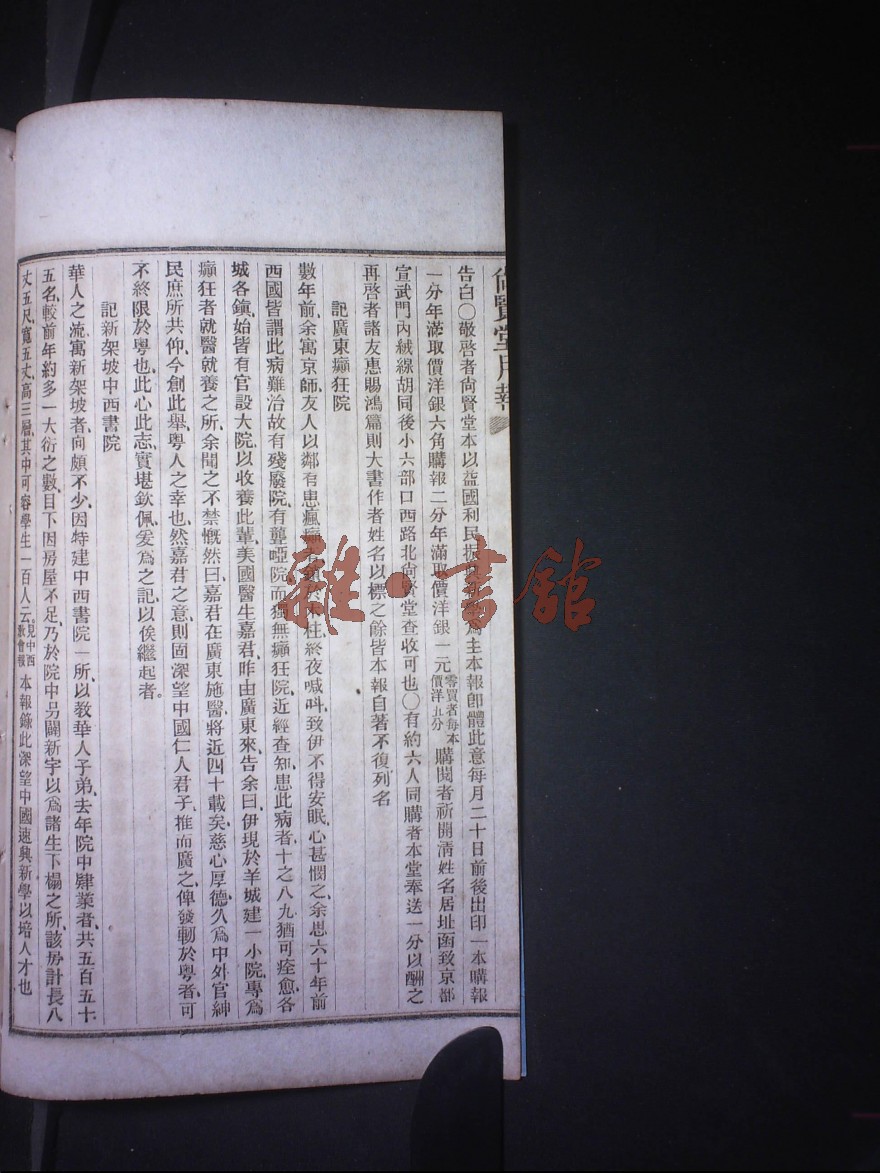 尙賢堂月報
告白〇敬啓者尙賢堂本以益國利民爲主本報卽體此意每月二十日前後出印一本購報
一分年滿取價洋銀六角購報二分年滿取價洋銀一元零買者每本價洋五分購閱者祈開淸姓名居址函致京都
宣武門內絨線胡同後小六部口西路北尙賢堂查收可也〇有約六人同購者本堂奉送一分以酬之
再啓者諸友惠賜鴻篇則大書作者姓名以標之餘皆本報自著不復列名
記廣東癲狂院
數年前、余寓京師、友人以鄰有患瘋癲者、於木柱、終夜喊呌、致伊不得安眠、心甚憫之、余思六十年前
西國皆謂此病難治故有殘廢院、有聾啞院而獨無癲狂院、近經查知、患此病者、十之八九猶可痊愈、各
城各鎭、始皆有官設大院、以收養此輩、美國醫生嘉君、昨由廣東來、告余曰、伊現於羊城建一小院、專爲
癲狂者就醫就養之所、余聞之不禁慨然曰、嘉君在廣東施醫、將近四十載矣、慈心厚德、久爲中外官紳
民庶所共仰、今創此舉、粵人之幸也、然嘉君之意、則固深望中國仁人君子、推而廣之、俾發軔於粵者、可
不終限於粵也、此心此志、實堪欽佩、爰爲之記、以俟繼起者。
記新架坡中西書院
華人之流寓新架坡者、向頗不少、因特建中西書院一所、以敎華人子弟、去年院中肄業者、共五百五十
五名、較前年約多一大衍之數、目下因房屋不足、乃於院中另闢新宇以爲諸生下榻之所、該房計長八
丈五尺、寬五丈、高三層、其中可容學生一百人云、見中西敎會報本報錄此深望中國速興新學以培人才也
雜·書館